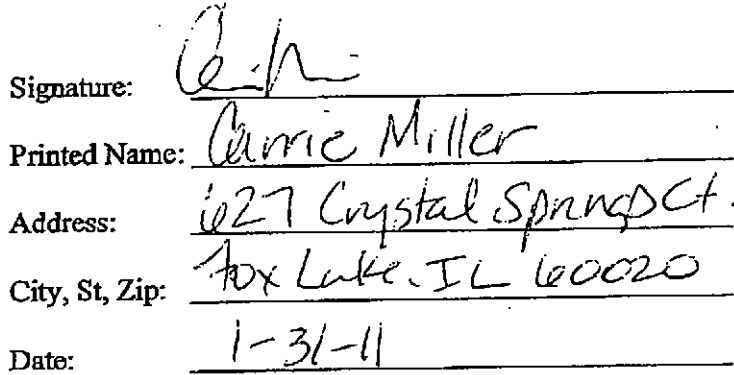 Signature:
Printed Name: Carrie Miller
Address: 627 Crystal Springs Ct.
City, St, Zip: Fox Lake, IL 60020
Date: 1-31-11